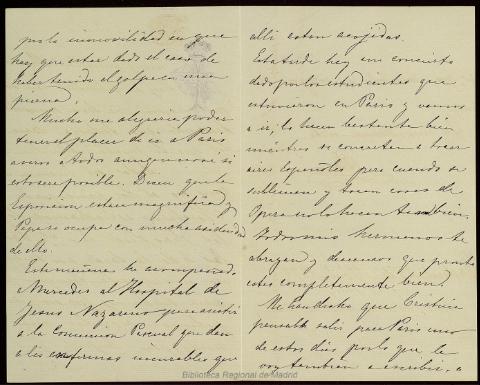 por la inmovilidad en que
hay que estar dado el caso de
haber tenido el golpe en una
pierna.
Mucho me alegraria poder
tener el placer de ir a Paris
a veros a todos aunque no sé si
esto sere posible. Dicen que la
Esposicion estara magnifica y
Pepe se ocupa con mucha asiduidad
de ello.
Esta mañana he acompañado
a Mercedes al Hospital de
Jesus Nazareno para asistir
a la Comunion Pascual que dan
a las enfermas incurables que
alli estan acojidas.
Esta tarde hay un concierto
dado por los estudientes que
estuvieron en Paris y vamos
a ir, lo hacen bastante bien
mientras se concretan a tocar
aires españoles pero cuando se
subliman y tocan cosas de
Opera no lo hacen tan bien.
Todos mis hermanos te
abrazan y desean que pronto
estes completamente bien.
Me han dicho que Cristina
pensaba salir para Paris uno
de estos dias por lo que le
voy tambien a escribir, a
Biblioteca Regional de Madrid